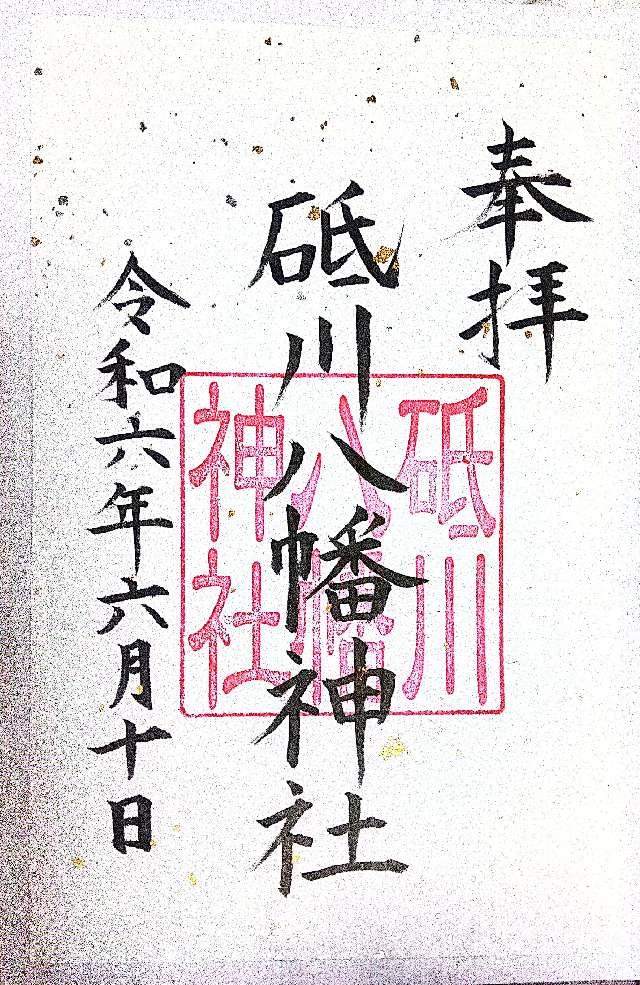 奉拝
砥川八幡神社
令和六年六月十日
砥川
八幡
神社